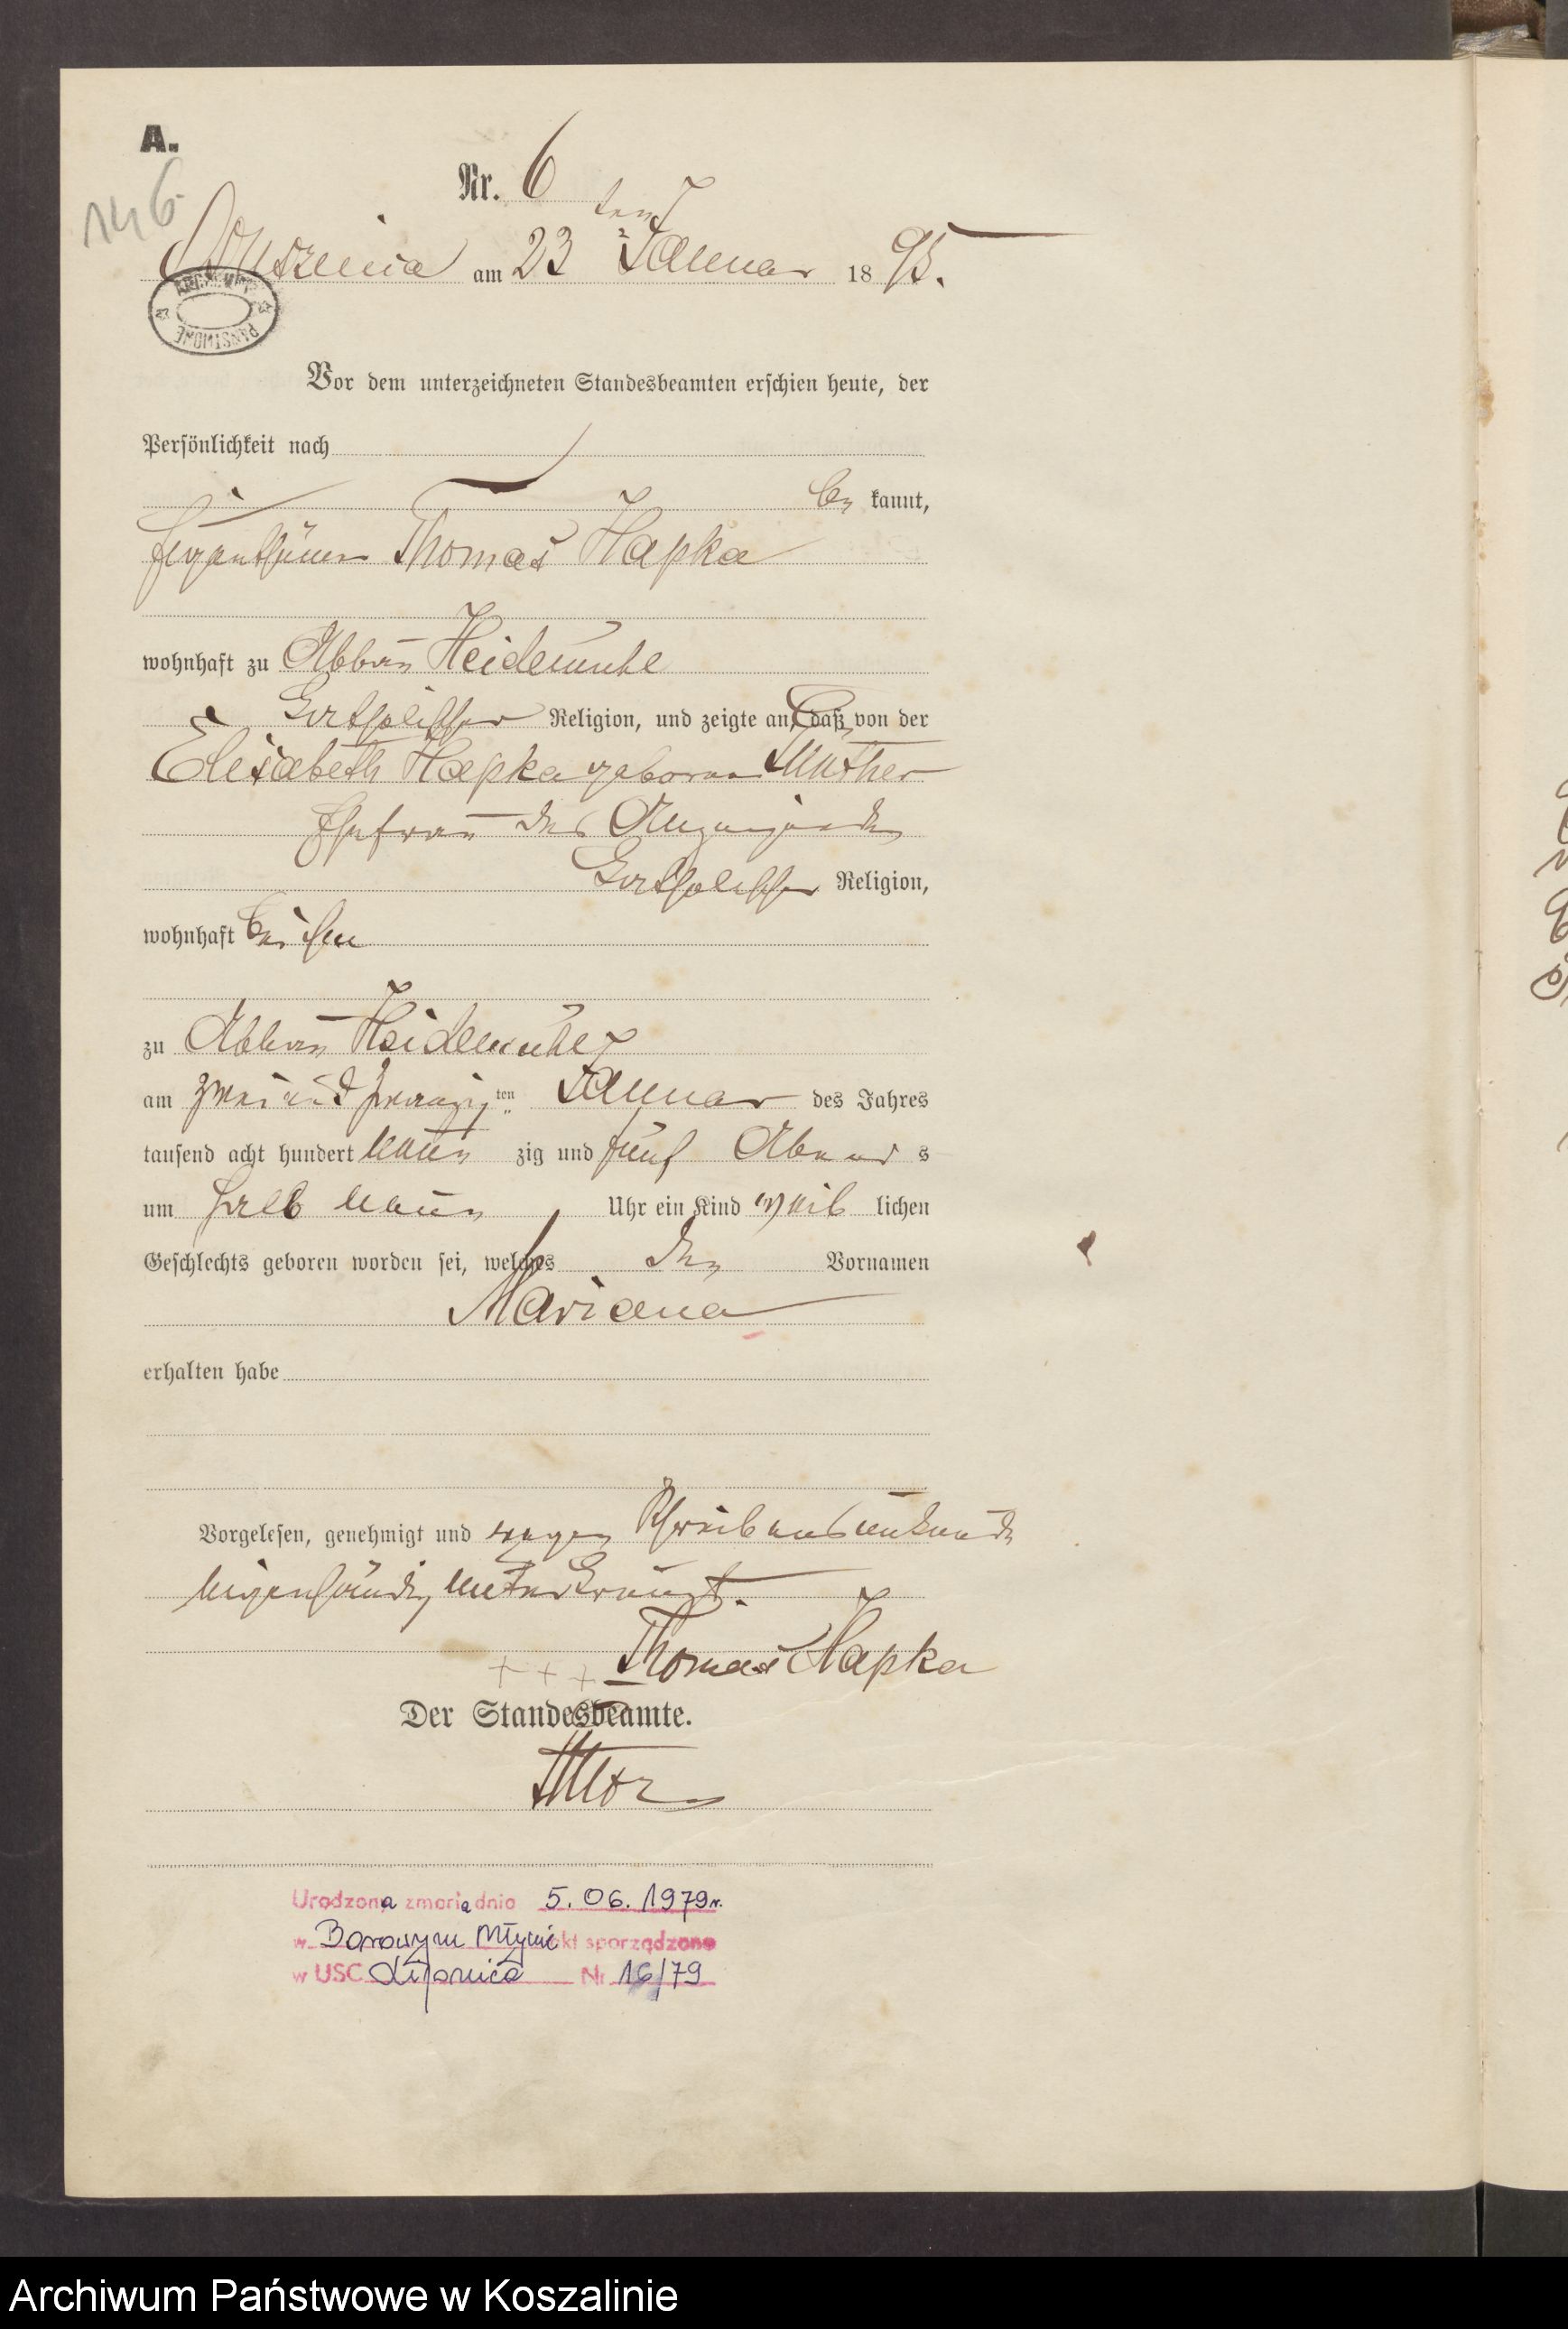 A.
146
Nr. 6
am 23 ten Januar 1895.
ARCHIWUM PAŃSTWOWE
Vor dem unterzeichneten Standesbeamten erschien heute, der
Persönlichkeit nach
be kannt,
Eigenthümer Thomas Hapka
wohnhaft zu Abbau Heidemühl
katholischer Religion, und zeigte an, daß von der
Elisabeth Hapka geborene
Ehefrau des Anzeigenden
katholischer Religion,
wohnhaft bei ihm
zu Abbau Heidemühl
am zwei und zwanzig ten Januar des Jahres
tausend acht hundert neun zig und fünf Abend s
um halb neun Uhr ein Kind weib lichen
Geschlechts geboren worden sei, welches den Vornamen
Mariana
erhalten habe
Vorgelesen, genehmigt und wegen Schreibensunkunde
eigenhändig unterkreuzt.
+ + + Thomas Hapka
Der Standesbeamte.
Urodzona zmarła dnia 5.06.1979 r.
w Borowym Młynie akt sporządzono
w USC Lipnica Nr 16/79
Archiwum Państwowe w Koszalinie